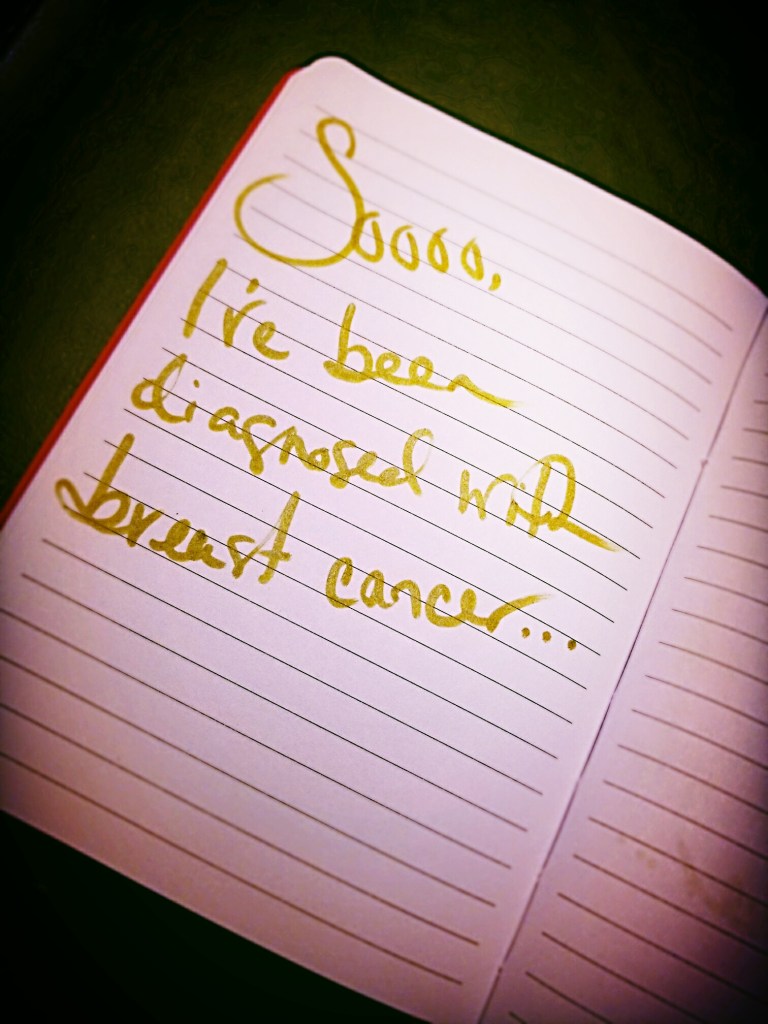 Soooo,
I've been
diagnosed with
breast cancer...